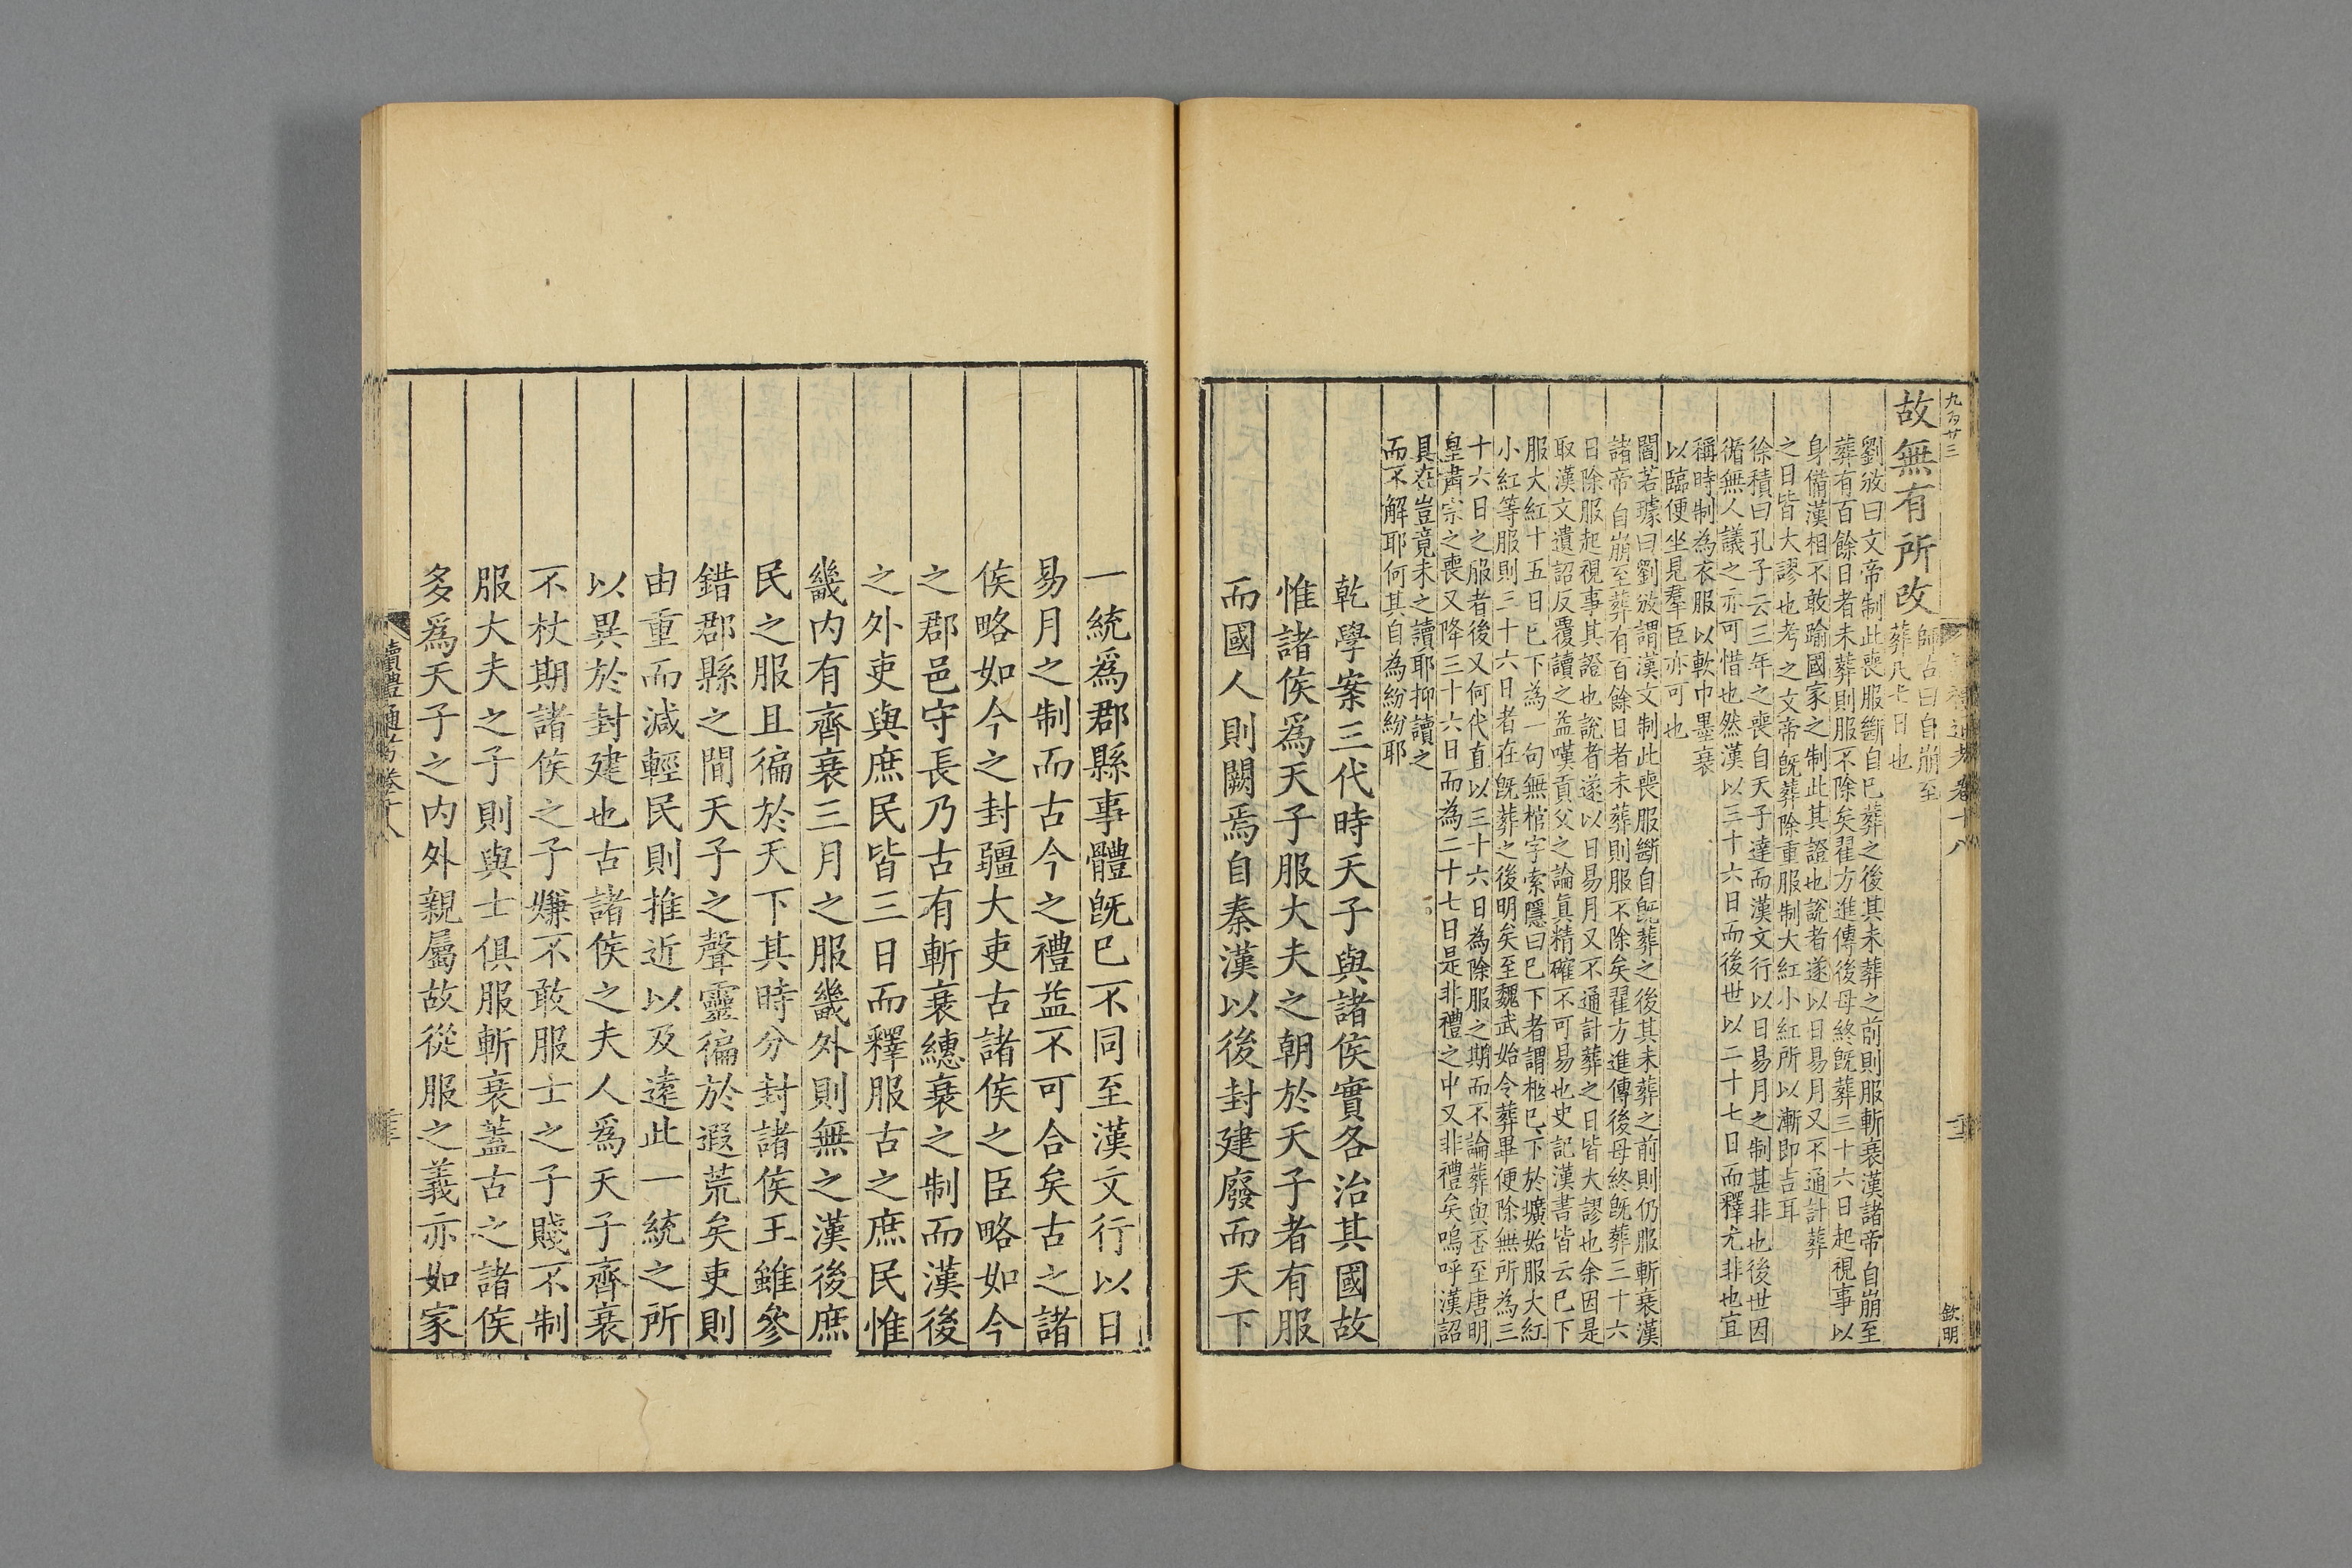 九百廿三
讀禮通考卷十八
欽明
故無有所改
師古曰自崩至
葬凡七日也
劉攽曰文帝制此喪服斷自已葬之後其未葬之前則服斬衰漢諸帝自崩至
葬有百餘日者未葬則服不除矣翟方進傳後母終旣葬三十六日起視事以
身備漢相不敢踰國家之制此其證也說者遂以日易月又不通計葬
之日皆大謬也考之文帝旣葬除重服制大紅小紅所以漸即吉耳
徐積曰孔子云三年之喪自天子達而漢文行以日易月之制甚非也後世因
循無人議之亦可惜也然漢以三十六日而後世以二十七日而釋尤非也宜
稱時制為衣服以軟巾墨衰
以臨便坐見羣臣亦可也
閻若璩曰劉攽謂漢文制此喪服斷自旣葬之後其未葬之前則仍服斬衰漢
諸帝自崩至葬有百餘日者未葬則服不除矣翟方進傳後母終旣葬三十六
日除服起視事其證也說者遂以日易月又不通計葬之日皆大謬也余因是
取漢文遺詔反覆讀之益嘆貢父之論眞精確不可易也史記漢書皆云已下
服大紅十五日已下為一句無棺字索隱曰已下者謂柩已下於壙始服大紅
小紅等服則三十六日者在旣葬之後明矣至魏武始令葬畢便除無所為三
十六日之服者後又何代直以三十六日為除服之期而不論葬與否至唐明
皇肅宗之喪又降三十六日而為二十七日是非禮之中又非禮矣嗚呼漢詔
具在豈竟未之讀耶抑讀之
而不解耶何其自為紛紛耶
乾學案三代時天子與諸侯實各治其國故
惟諸侯爲天子服大夫之朝於天子者有服
而國人則闕焉自秦漢以後封建廢而天下
一統爲郡縣事體旣已不同至漢文行以日
易月之制而古今之禮益不可合矣古之諸
侯略如今之封疆大吏古諸侯之臣略如今
之郡邑守長乃古有斬衰繐衰之制而漢後
之外吏與庶民皆三日而釋服古之庶民惟
畿内有齊衰三月之服畿外則無之漢後庶
民之服且徧於天下其時分封諸侯王雖參
錯郡縣之間天子之聲靈徧於遐荒矣吏則
由重而減輕民則推近以及遠此一統之所
以異於封建也古諸侯之夫人爲天子齊衰
不杖期諸侯之子嫌不敢服士之子賤不制
服大夫之子則與士俱服斬衰蓋古之諸侯
多爲天子之内外親屬故從服之義亦如家
讀禮通考卷十八